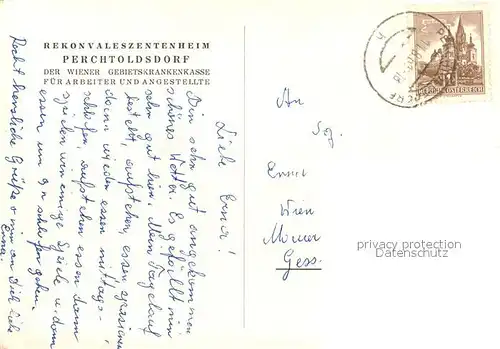 REKONVALESZENTENHEIM
PERCHTOLDSDORF
DER WIENER GEBIETSKRANKENKASSE
FÜR ARBEITER UND ANGESTELLTE
Liebe
Bin sehr gut angekommen
schönes Wetter. Es gefällt mir
sehr gut hier. Mein Tageslauf
besteht, aufstehen, essen, spazieren
dann wieder essen mittags-
schlafen, aufstehen essen dann
spielen wir einige Spiele u. dann
essen um 9 schlafen gehen.
Recht herzliche Grüße von an Dich liebe
An
Wien
Gess.
REPUBLIK ÖSTERREICH
privacy protection
Datenschutz